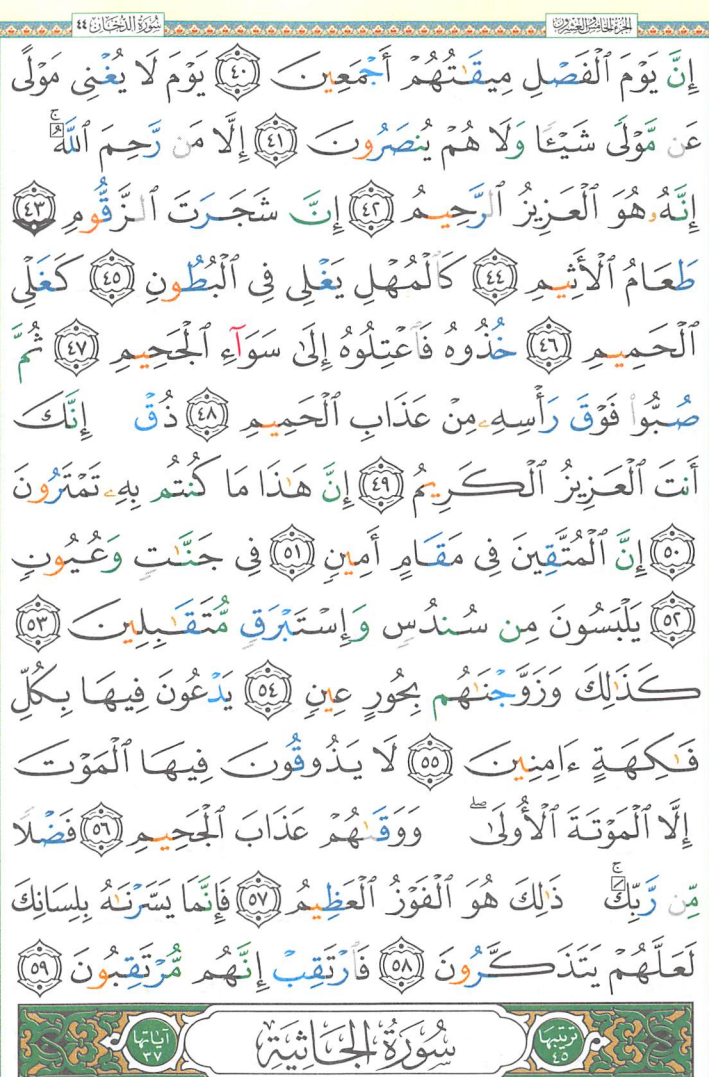 الجزء الخامس والعشرون
سورة الدخان ٤٤
إِنَّ يَوْمَ ٱلْفَصْلِ مِيقَٰتُهُمْ أَجْمَعِينَ ٤٠ يَوْمَ لَا يُغْنِى مَوْلًى
عَن مَّوْلًى شَيْـًٔا وَلَا هُمْ يُنصَرُونَ ٤١ إِلَّا مَن رَّحِمَ ٱللَّهُ ۚ
إِنَّهُۥ هُوَ ٱلْعَزِيزُ ٱلرَّحِيمُ ٤٢ إِنَّ شَجَرَتَ ٱلزَّقُّومِ ٤٣
طَعَامُ ٱلْأَثِيمِ ٤٤ كَٱلْمُهْلِ يَغْلِى فِى ٱلْبُطُونِ ٤٥ كَغَلْىِ
ٱلْحَمِيمِ ٤٦ خُذُوهُ فَٱعْتِلُوهُ إِلَىٰ سَوَآءِ ٱلْجَحِيمِ ٤٧ ثُمَّ
صُبُّوا۟ فَوْقَ رَأْسِهِۦ مِنْ عَذَابِ ٱلْحَمِيمِ ٤٨ ذُقْ إِنَّكَ
أَنتَ ٱلْعَزِيزُ ٱلْكَرِيمُ ٤٩ إِنَّ هَٰذَا مَا كُنتُم بِهِۦ تَمْتَرُونَ
٥٠ إِنَّ ٱلْمُتَّقِينَ فِى مَقَامٍ أَمِينٍ ٥١ فِى جَنَّٰتٍ وَعُيُونٍ
٥٢ يَلْبَسُونَ مِن سُندُسٍ وَإِسْتَبْرَقٍ مُّتَقَٰبِلِينَ ٥٣
كَذَٰلِكَ وَزَوَّجْنَٰهُم بِحُورٍ عِينٍ ٥٤ يَدْعُونَ فِيهَا بِكُلِّ
فَٰكِهَةٍ ءَامِنِينَ ٥٥ لَا يَذُوقُونَ فِيهَا ٱلْمَوْتَ
إِلَّا ٱلْمَوْتَةَ ٱلْأُولَىٰ ۖ وَوَقَىٰهُمْ عَذَابَ ٱلْجَحِيمِ ٥٦ فَضْلًا
مِّن رَّبِّكَ ۚ ذَٰلِكَ هُوَ ٱلْفَوْزُ ٱلْعَظِيمُ ٥٧ فَإِنَّمَا يَسَّرْنَٰهُ بِلِسَانِكَ
لَعَلَّهُمْ يَتَذَكَّرُونَ ٥٨ فَٱرْتَقِبْ إِنَّهُم مُّرْتَقِبُونَ ٥٩
ترتيبها ٤٥
سُورَةُ الجَاثِيَةِ
آياتها ٣٧